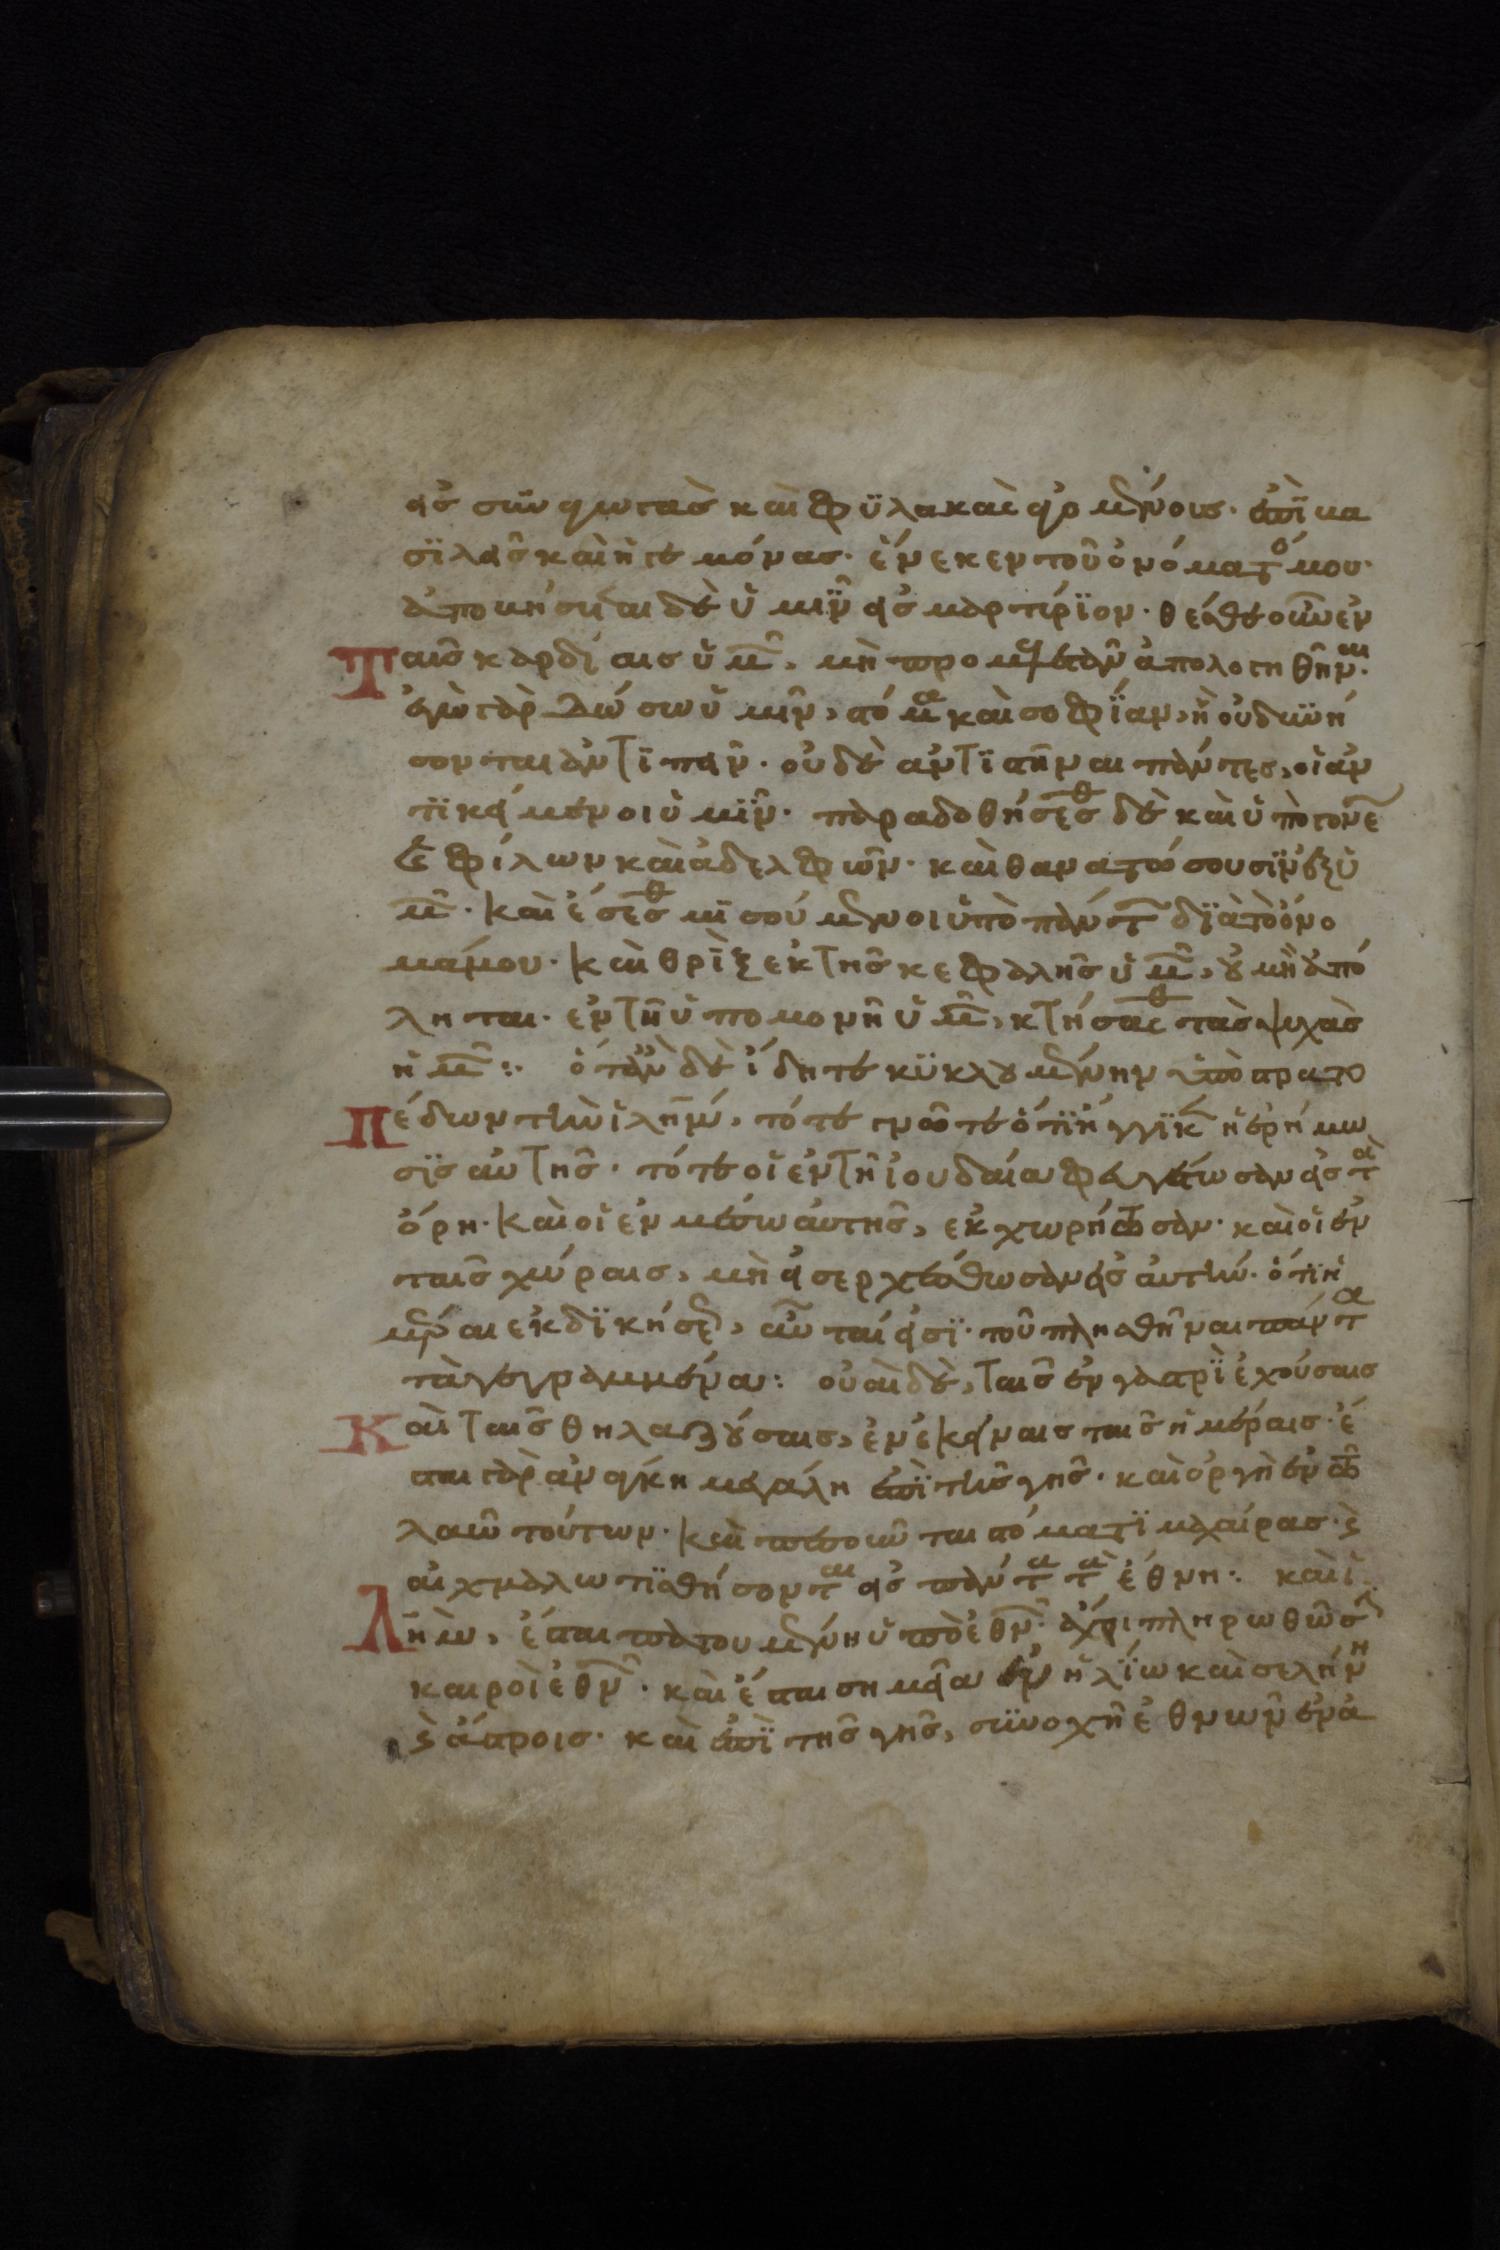 εἰς συναγωγὰσ καὶ φϋλακὰς ἀγομένους· ἐπῒ βα
σϊλεῖς καὶ ἡγεμόνασ· ἕνεκεν τοῦ ὀνόματος μου·
ἀποβήσεται δὲ ὑμῖν εἰς μαρτύρϊον· θέσθε οὖν ἐν
ταῖς καρδίαις ὑμῶν, μὴ προμελετᾶν ἀπολογηθῆναι·
ἐγὼ γὰρ δώσω ὑμῖν, στόμα καὶ σοφΐαν, ἧ οὐ δυνή
σονται ἀντϊπεῖν· οὐδὲ ἀντϊστῆναι πάντες, οἱ ἀν
τϊκείμενοι ὑμῖν· παραδοθήσεσθε δὲ καὶ ὑπὸ γονέ
ων φίλων καὶ ἀδελφῶν· καὶ θανατώσουσϊν ἐξ ὑ
μῶν· καὶ ἔσεσθε μϊσούμενοι ὑπὸ πάντων δϊὰ τὸ ὄνο
μά μου· καὶ θρὶξ ἐκ τῆς κεφαλῆς ὑμῶν, οὐ μὴ ἀπό
ληται· ἐν τῆ ὑπομονῆ ὑμῶν, κτήσασθε τὰς ψυχὰς
ἡμῶν: ὅταν δὲ ἴδητε κϋκλουμένην ὑπὸ στρατο
πέδων τὴν ἰλήμ, τότε γνῶτε ὅτϊ ἤγγϊκεν ἡ ἐρήμω
σϊς αὐτῆς· τότε οἱ ἐν τῆ ἰουδαία φευγέτωσαν εἰς τὰ
ὄρη· καὶ οἱ ἐν μέσω αὐτῆς, ἐκχωρήτωσαν· καὶ οἱ ἐν
ταῖς χώραις, μὴ εἰσερχέσθωσαν εἰς αὐτήν· ὅτϊ ἡ
μέραι ἐκδϊκήσεως, αὗταί εἰσϊ· τοῦ πλησθῆναι πάντα
τὰ γεγραμμένα: οὐαὶ δὲ, ταῖς ἐν γαστρῒ ἐχούσαις
καὶ ταῖς θηλαζούσαις, ἐν ἐκείναις ταῖς ἡμέραις· ἔ
σται γὰρ ἀνάγκη μεγάλη ἐπῒ τῆς γῆς· καὶ ὀργὴ ἐν τῶ
λαῶ τούτων· καὶ πεσοῦνται στόματϊ μαχαίρας· καὶ
αἰχμαλωτϊσθήσονται εἰς πάντα τὰ ἔθνη: καὶ ἰ
λήμ, ἔσται πατουμένη ὑπὸ ἐθνῶν· ἄχρι πληρωθῶσι
καιροὶ ἐθνῶν· καὶ ἔσται σημεῖα ἐν ἡλΐω καὶ σελήνη
καὶ ἄστροις· καὶ ἐπῒ τῆς γῆς, συνοχῆ ἐθνῶν ἐν ἀ